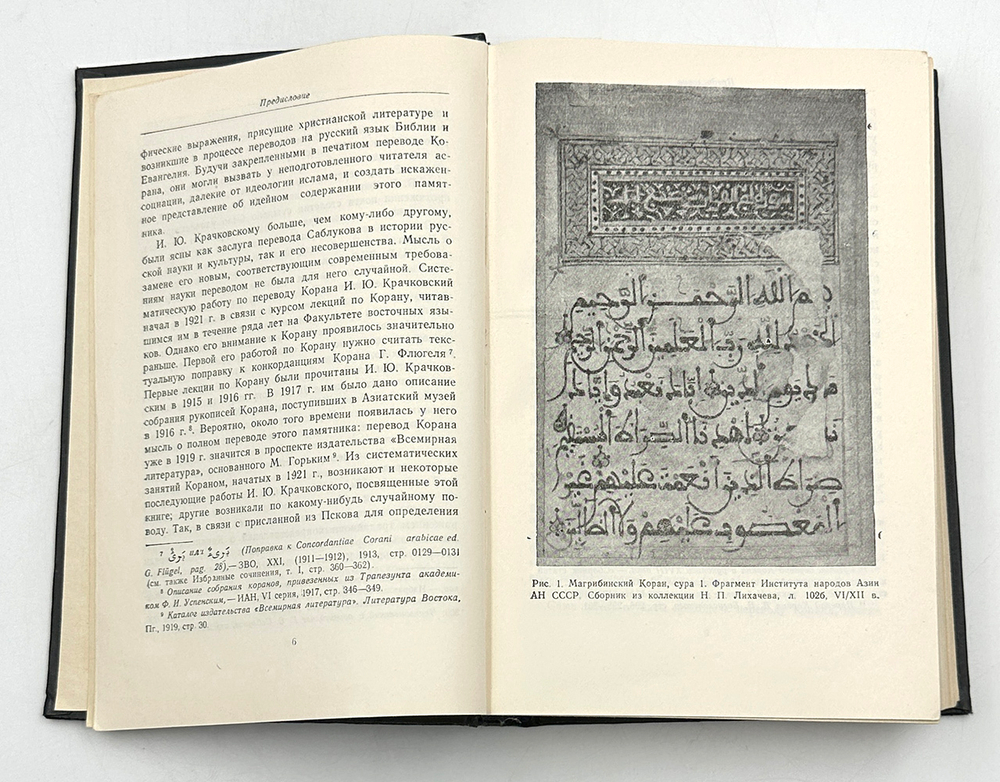 Предисловие
фические выражения, присущие христианской литературе и
возникшие в процессе переводов на русский язык Библии и
Евангелия. Будучи закрепленными в печатном переводе Ко-
рана, они могли вызвать у неподготовленного читателя ас-
социации, далекие от идеологии ислама, и создать искажен-
ное представление об идейном содержании этого памят-
ника.
И. Ю. Крачковскому больше, чем кому-либо другому,
были ясны как заслуга перевода Саблукова в истории рус-
ской науки и культуры, так и его несовершенства. Мысль о
замене его новым, соответствующим современным требова-
ниям науки переводом не была для него случайной. Систе-
матическую работу по переводу Корана И. Ю. Крачковский
начал в 1921 г. в связи с курсом лекций по Корану, читав-
шимся им в течение ряда лет на Факультете восточных язы-
ков. Однако его внимание к Корану проявилось значительно
раньше. Первой его работой по Корану нужно считать текс-
туальную поправку к конкорданциям Корана Г. Флюгеля 7.
Первые лекции по Корану были прочитаны И. Ю. Крачков-
ским в 1915 и 1916 гг. В 1917 г. им было дано описание
собрания рукописей Корана, поступивших в Азиатский музей
в 1916 г. 8. Вероятно, около того времени появилась у него
мысль о полном переводе этого памятника: перевод Корана
уже в 1919 г. значится в проспекте издательства «Всемирная
литература», основанного М. Горьким 9. Из систематических
занятий Кораном, начатых в 1921 г., возникают и некоторые
последующие работы И. Ю. Крачковского, посвященные этой
книге; другие возникали по какому-нибудь случайному по-
воду. Так, в связи с присланной из Пскова для определения
7 или (Поправка к Concordantiae Corani arabicae ed.
G. Flügel, pag. 28),— ЗВО, XXI, (1911—1912), 1913, стр. 0129—0131
(см. также Избранные сочинения, т. I, стр. 360—362).
8 Описание собрания коранов, привезенных из Трапезунта академи-
ком Ф. И. Успенским,— ИАН, VI серия, 1917, стр. 346—349.
9 Каталог издательства «Всемирная литература». Литература Востока,
Пг., 1919, стр. 30.
6
م الله الرحمن الرحيم
الحمد لله رب العلمين الرحمن الرحيم
صراط الذين أنعمت عليهم غير
المغضوب عليهم ولا الضالين
Рис. 1. Магрибинский Коран, сура 1. Фрагмент Института народов Азии
АН СССР. Сборник из коллекции Н. П. Лихачева, л. 102б, VI/XII в.